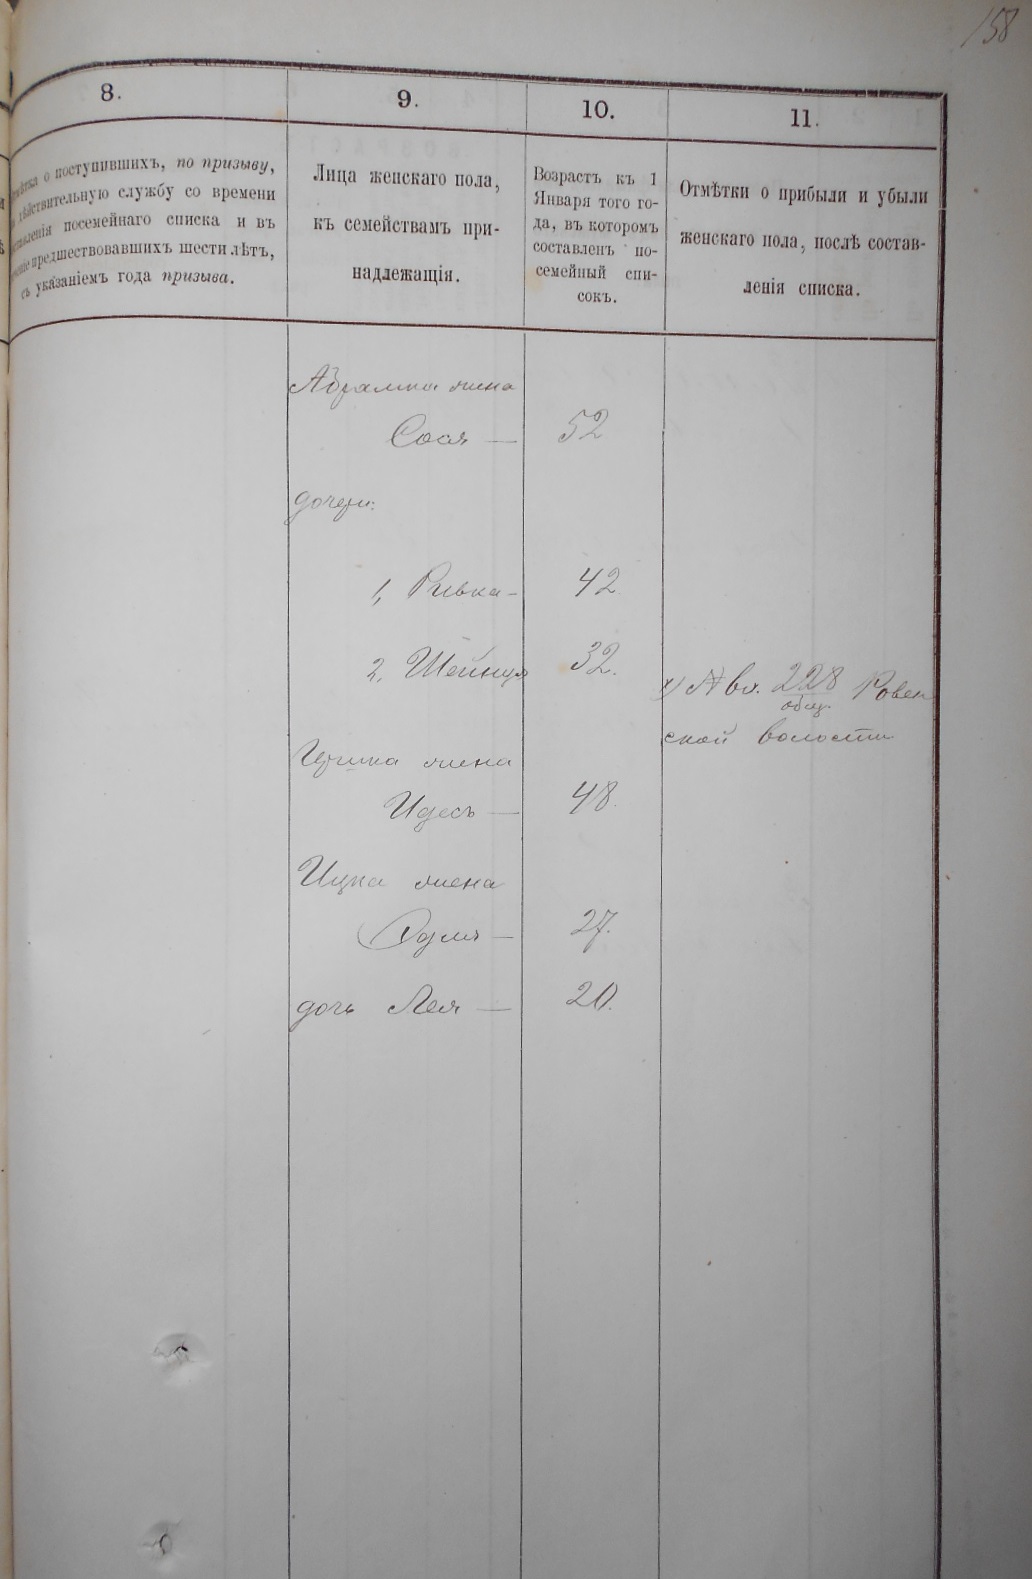 158
8.
9.
10.
11.
о поступившихъ, по призыву,
дѣйствительную службу со времени
посемейнаго списка и въ
предшествовавшихъ шести лѣтъ,
съ указаніемъ года призыва.
Лица женскаго пола,
къ семействамъ при-
надлежащія.
Возрастъ къ 1
Января того го-
да, въ которомъ
составленъ по-
семейный спи-
сокъ.
Отмѣтки о прибыли и убыли
женскаго пола, послѣ состав-
ленія списка.
Абрамка жена
Сося — 52
дочери:
1, Ривка – 42
2, Шейнця 32.
228 Ровен
общ.
ской волости
Гершка жена
Идесъ — 48.
Ицка жена
27.
дочь Лея — 20.